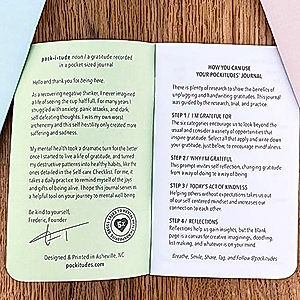 pack·i·tude noun / a gratitude recorded
in a pocket sized journal
Hello and thank you for being here.
As a recovering negative thinker, I never imagined
a life of seeing the cup half full. For many years I
struggled with anxiety, panic attacks, and dark,
self defeating thoughts. I was my own worst
archenemy and this self hostility only created more
suffering and sadness.
My mental health took a dramatic turn for the better
once I started to live a life of gratitude, and turned
my destructive patterns into healthy habits, like the
ones detailed in the Self care Checklist. For me, it
takes a daily practice to remind myself of the joys
and gifts of being alive. I hope this journal serves as
a helpful tool on your journey to mental well being.
Be kind to yourself,
Frederic, Founder
Designed & Printed in Asheville, NC
pockitudes.com
HOW YOU CAN USE
YOUR POCKITUDES' JOURNAL
There is plenty of research to show the benefits of
unplugging and handwriting gratitudes. This journal
was guided by the research, trial, and practice.
STEP 1 / I'M GRATEFUL FOR
The six categories encourage us to look beyond the
usual and consider a variety of opportunities that
inspire gratitude. Apply a write and write down
your gratitude, just below, to encourage mindfulness.
STEP 2 / WHY I'M GRATEFUL
This prompt invites self reflection, changing gratitude
from a way of doing to a way of being.
STEP 3 / TODAY'S ACT OF KINDNESS
Helping others without expectations takes us out of
our self-centered mindset and increases our
connection to each other.
STEP 4 / REFLECTIONS
Reflections help us gain insights, but the blank
page is a canvas for creative imaginings, doodling,
list making, and whatever is on your mind.
Breathe, Smile, Share, Tag, and Follow @pockitudes